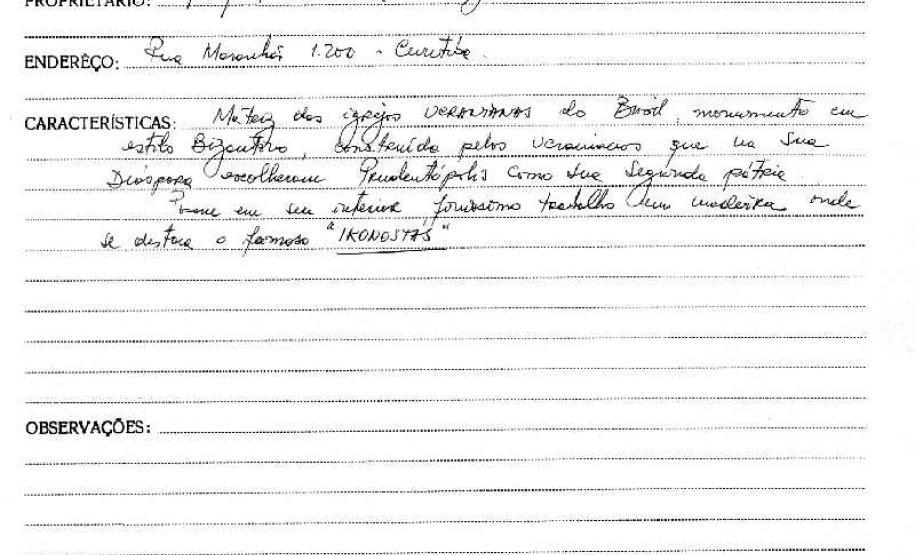 PROPRIETÁRIO:
ENDERÊÇO: Rua Maranhão 1.200 - Curitiba.
CARACTERÍSTICAS: Matriz das igrejas UCRANIANAS do Brasil, monumento em
estilo Bizantino, construída pelos ucranianos que na sua
Diáspora escolheram Prudentópolis como sua Segunda pátria.
em seu interior, finíssimo trabalho em madeira onde
se destaca o famoso "IKONOSTAS"
OBSERVAÇÕES: